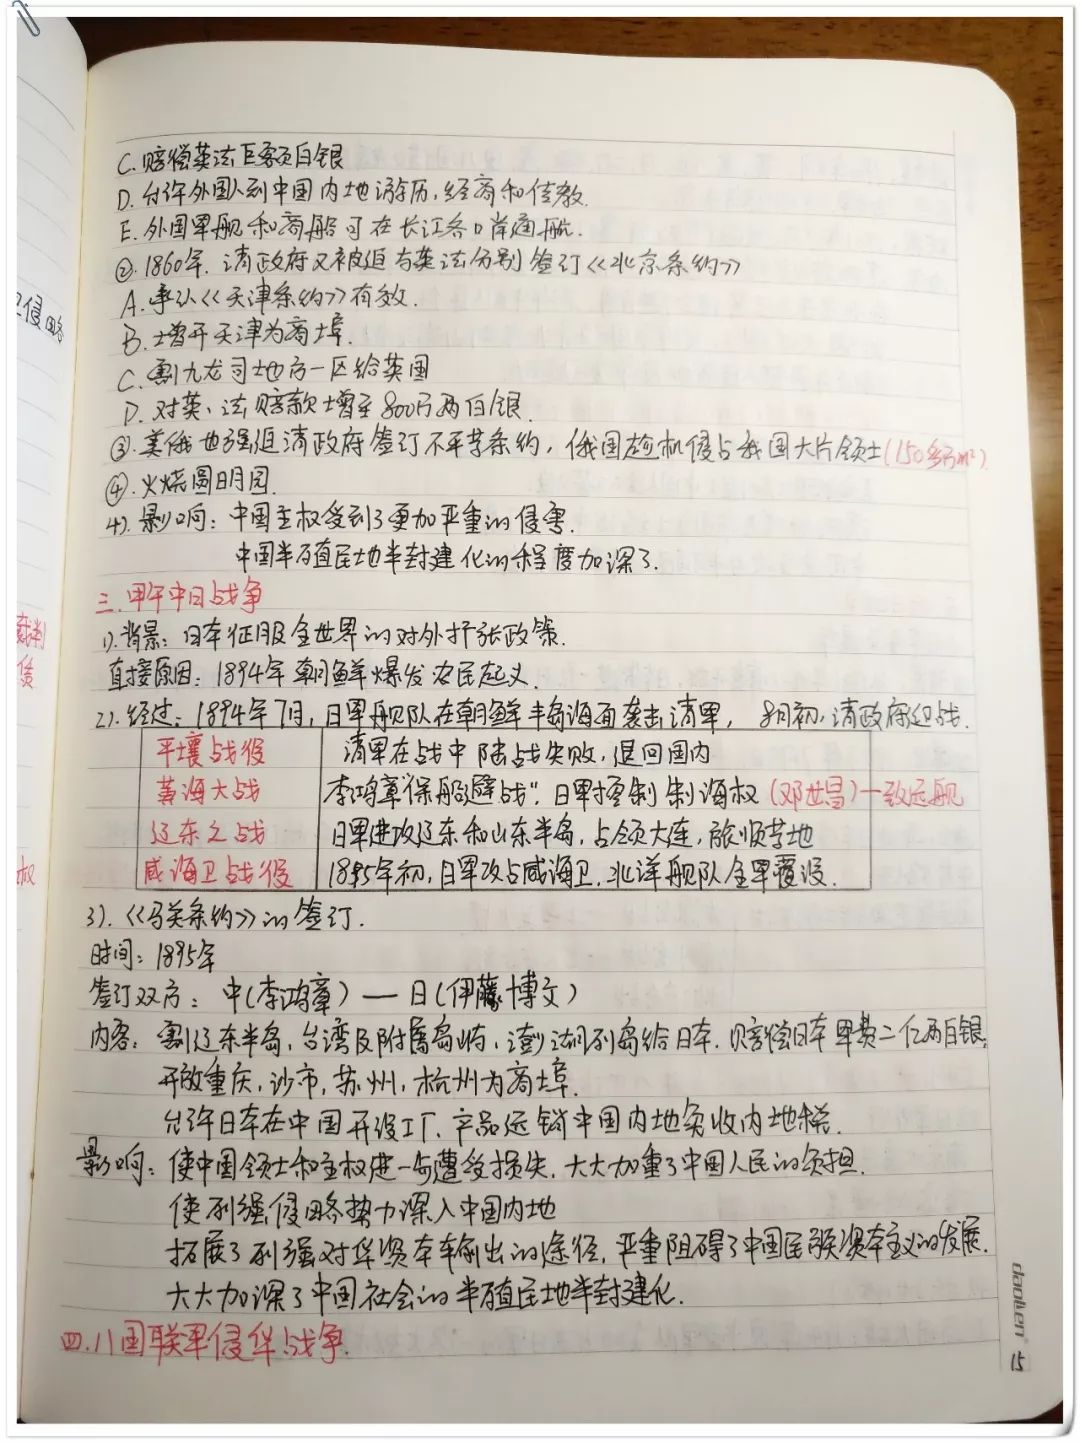 C.赔偿英法巨额白银
D.允许外国人到中国内地游历,经商和传教.
E.外国军舰和商船可在长江各口岸通航.
②.1860年.清政府又被迫与英法分别签订《北京条约》
A.承认《天津条约》有效.
B.增开天津为商埠.
C.割九龙司地方一区给英国
D.对英、法赔款增至800万两白银.
③.美俄也强迫清政府签订不平等条约,俄国趁机侵占我国大片领土(150多万m²).
④.火烧圆明园.
4).影响:中国主权受到了更加严重的侵害.
中国半殖民地半封建化的程度加深了.
三.甲午中日战争
1).背景:日本征服全世界的对外扩张政策.
直接原因:1894年朝鲜爆发农民起义.
2).经过:1894年7月,日军舰队在朝鲜半岛海面袭击清军,8月初,清政府迎战.
平壤战役 清军在战中陆战失败,退回国内
黄海大战 李鸿章"保船避战".日军控制制海权(邓世昌)—致远舰
辽东之战 日军进攻辽东和山东半岛,占领大连,旅顺等地
威海卫战役 1895年初,日军攻占威海卫.北洋舰队全军覆没.
3).《马关条约》的签订.
时间:1895年
签订双方:中(李鸿章)—日(伊藤博文)
内容:割辽东半岛,台湾及附属岛屿,澎湖列岛给日本.赔偿日本军费二亿两白银,
开放重庆,沙市,苏州,杭州为商埠.
允许日本在中国开设工厂、产品运销中国内地免收内地税.
影响:使中国领土和主权进一步遭受损失.大大加重了中国人民的负担.
使列强侵略势力深入中国内地
拓展了列强对华资本输出的途径,严重阻碍了中国民族资本主义的发展.
大大加深了中国社会的半殖民地半封建化.
四.八国联军侵华战争.
侵略
裁判
权
daolen
15